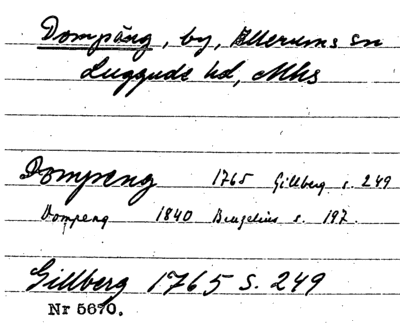 Dompäng, by, Ellerums sn
Luggude hd, Mhs
Dompeng 1765 Gillberg s. 249
Dompeng 1840 Bruzelius s. 197.
Gillberg 1765 s. 249
Nr 5670.